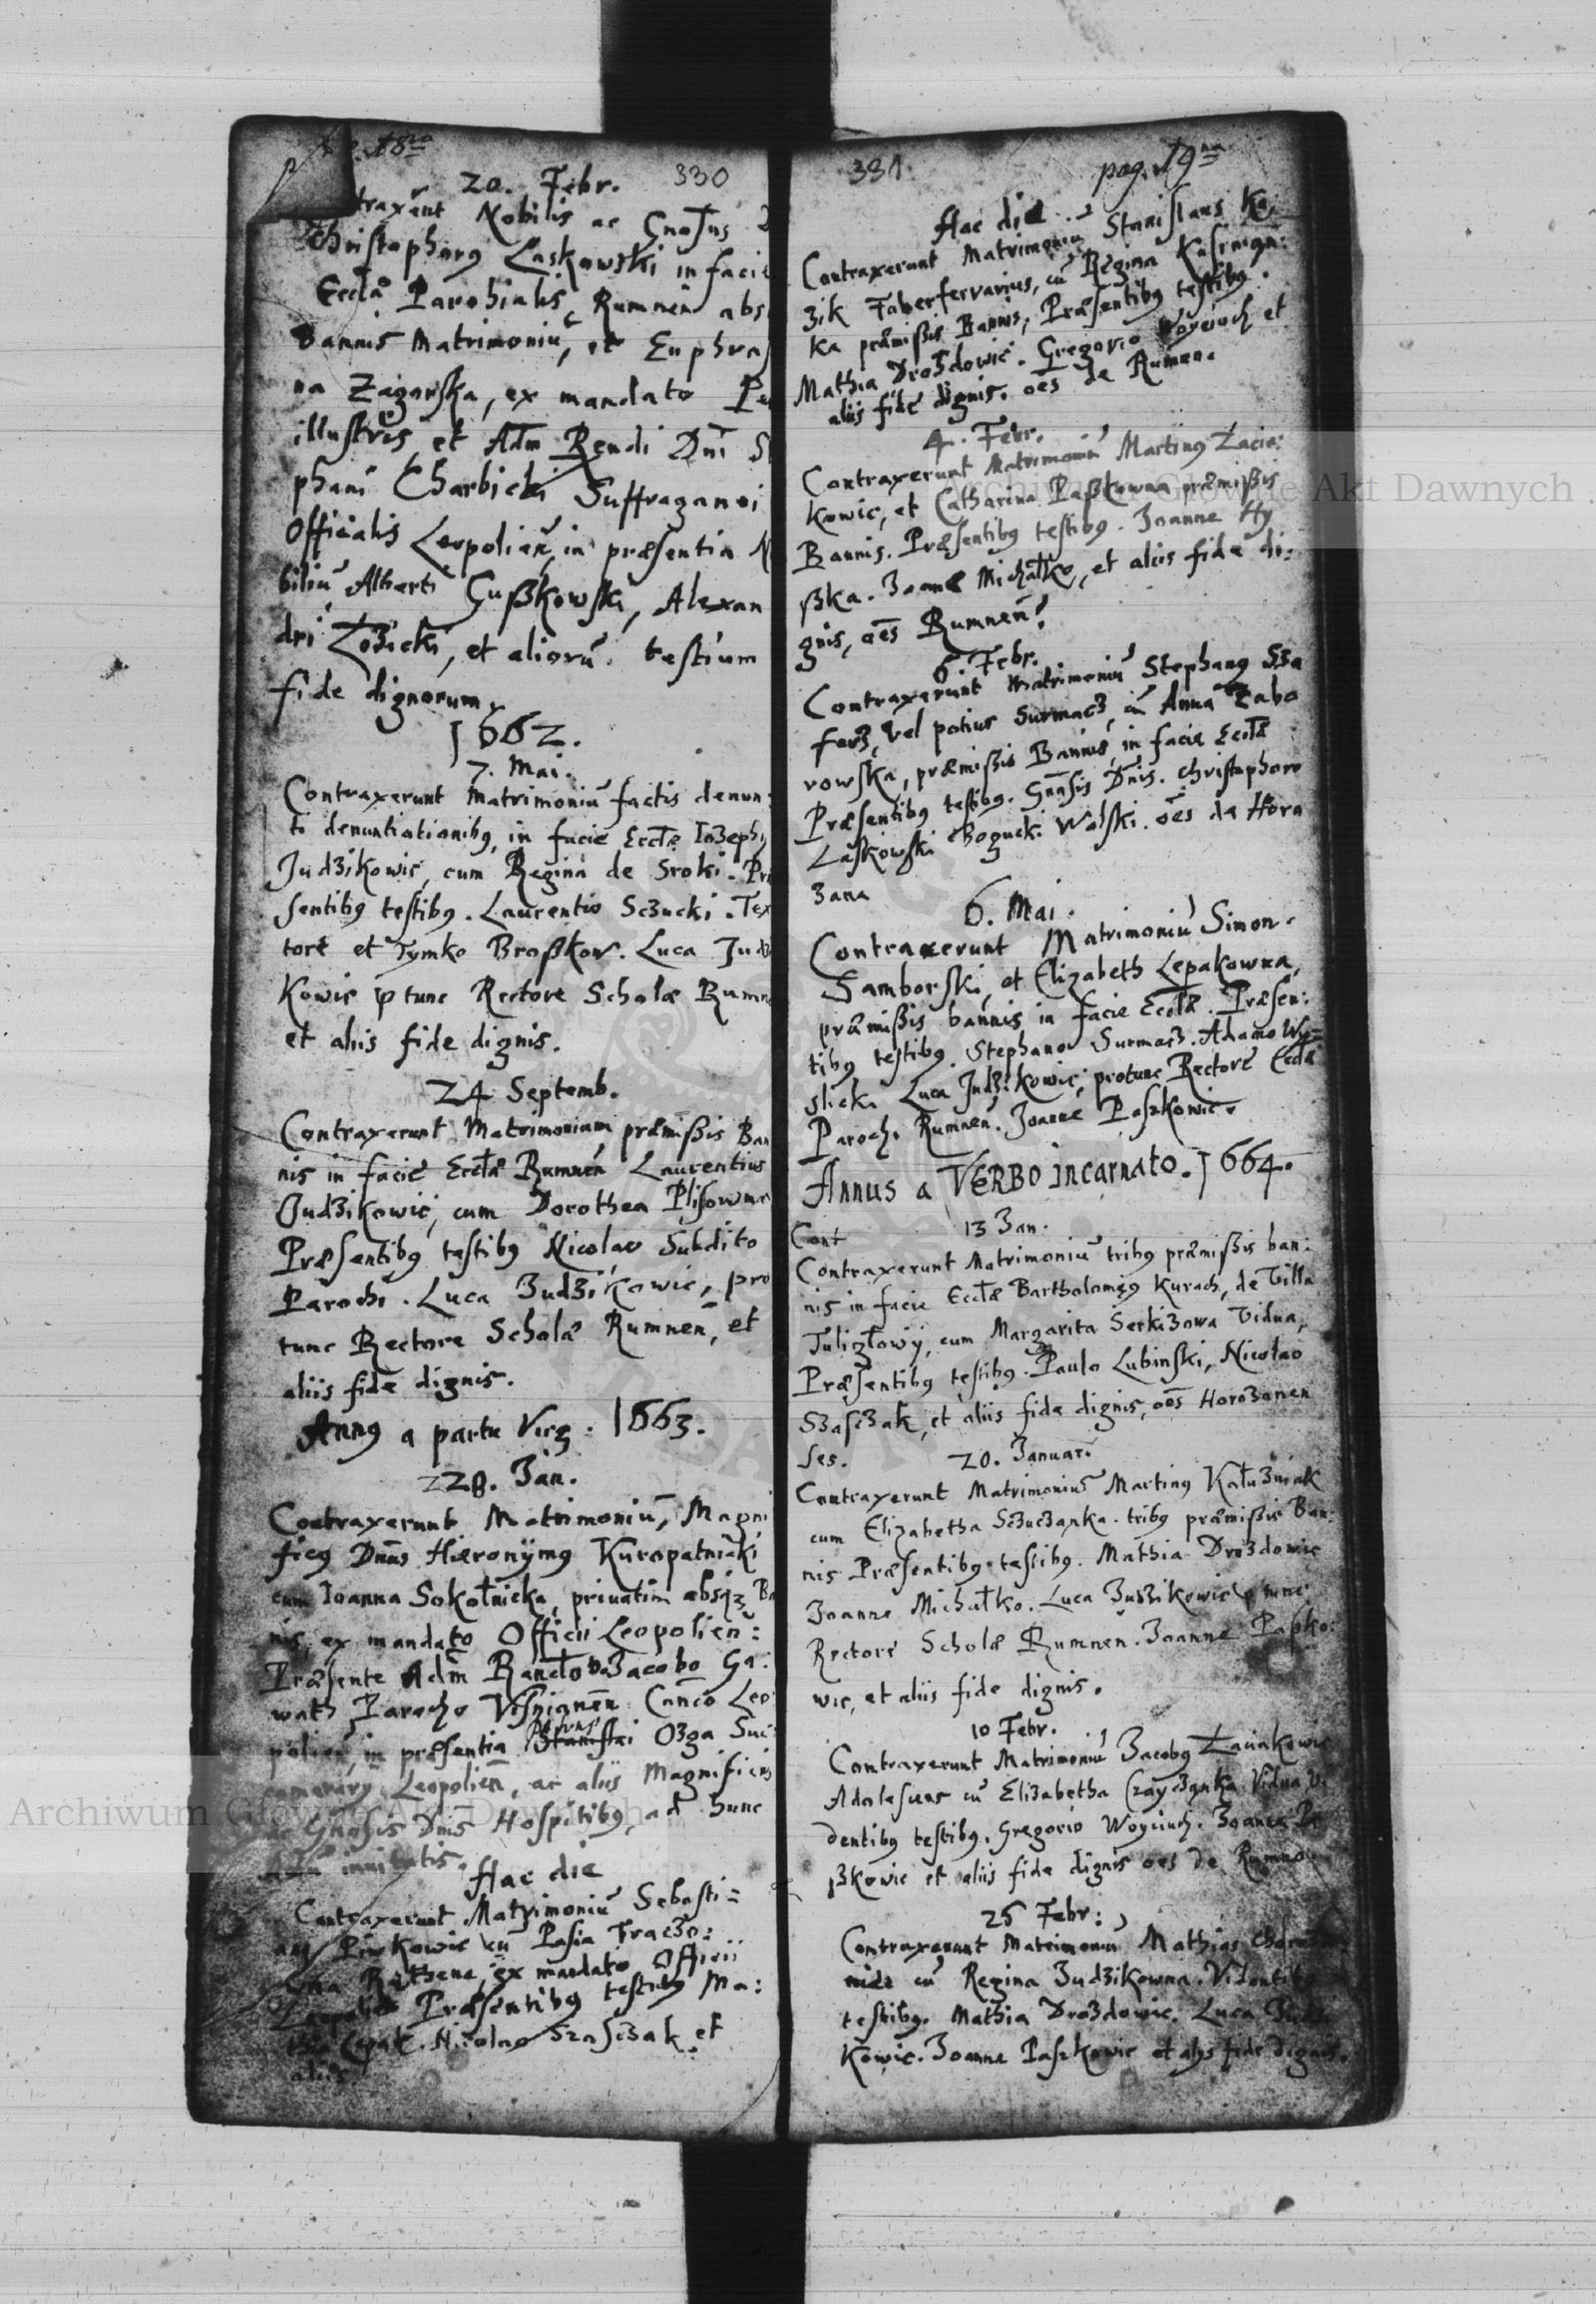 18va
330
20. Febr.
traxerut Nobilis ac Gnosus
Christophorg Laskowski in facie
Eccla Parohialis Rumnen abs
Bannis Matrimoniu, et Euphras
na Zagorska, ex mandato Per
illustris et Adm Rendi Dni S
phani Charbicki Suffraganei
Officialis Leopolien, in præsentia N
biliu Alberti Gußkowski, Alexan
dri Łozicki, et alioru testium
fide dignorum.
1662.
7. Mai.
Contraxerunt Matrimoniu factis denun:
ti denuntiationibg, in facie Eccłæ Iozephg
Judzikowic, cum Regina de Sroki. Præ
sentibg testibg. Laurentio Sczucki. Tex
tore et Tymko Broßkow. Luca Judzi
Kowic p tunc Rectore Scholæ Rumn
et aliis fide dignis.
24 Septemb.
Contraxerunt Matrimonium præmißis Ban
nis in facie Eccłæ Rumnen Laurentius
Judzikowic, cum Dorothea Plisowna
Præsentibg testibg Nicolao Subdito
Parochi. Luca Judzikowic, pro
tunc Rectore Scholæ Rumnen, et
aliis fide dignis.
Anng a partu Virg. 1663.
228. Jan.
Contraxerunt Matrimoniu, Magni
ficg Dnus Hieronymg Kuropatnicki
cum Joanna Sokołnicka, priuatim absqz Ba
nis, ex mandato Officii Leopolien:
Præsente Adm Jacobo Ga:
wath Parocho Visnignen Canco Leo
polien, in præsentia Petrus Stanislai Ozga Suc
camerary Leopolien, ac aliis Magnificis
ac Gnosis Dnis Hospitibg, ad hunc
inuitatis.
Hac die
Contraxerunt Matrimoniu Sebasti=
ang Pirkowic cu Pasia Traczo:
wna Ruthena, ex mandato Officii
Leopolien Præsentibg testibg Ma:
Lepak. Nicolao Szasczak et
aliis
331.
pag. 19na
Hac die
Contraxerunt Matrimoniu Stanislaus Ka
zik Faberferrarius, cu Regina
ka præmißis Bannis, Præsentibg testibg.
Mathia Drozdowic. Gregorio Woyciuch et
aliis fide dignis. oes de Rumen.
4. Febr.
Contraxerunt Matrimoniu Marting Łacia:
kowic, et Catharina Paßkowna præmißis
Bannis. Præsentibg testibg. Joanne Hy
ßka. Joane Michałko, et aliis fide di:
gnis, oes Rumnen.
6. Febr.
Contraxerunt Matrimoniu Stephang Sza
farz, vel potius Surmacz, cu Anna Zabo
rowska, præmißis Bannis, in facie Eccłæ
Præsentibg testibg. Gnosis Dnis. Christophoro
Laskowski Wolski. oes de Horo
zana
6. Mai.
Contraxerunt Matrimoniu Simon.
Samborski, et Elizabeth Lepakowna,
præmißis bannis in facie Eccłæ. Præsen:
tibg testibg. Stephano Surmacz. Adamo Wy=
slicki Luca Judzikowic, protunc Rectore Eccłæ
Paroch. Rumnen. Joanne Paszkowic.
Annus a VERBO incarnato. 1664.
Cont
13 Jan.
Contraxerunt Matrimoniu tribg præmißis ban:
nis in facie Eccłæ Bartholomeg Kurach, de Villa
Tuligłowy, cum Margarita Serkizowa Vidua,
Præsentibg testibg. Paulo Lubinski, Nicolao
Szasczak, et aliis fide dignis, oes Horozanen
ses.
20. Januar.
Contraxerunt Matrimoniu Marting Kałuzniak
cum Elizabetha Sczuczanka. tribg præmißis Ban:
nis Præsentibg testibg. Mathia Drozdowic
Joanne Michałko. Luca Judzikowic p tunc
Rectore Scholæ Rumnen. Joanne Paßko:
wic, et aliis fide dignis.
10 Febr.
Contraxerunt Matrimoniu Jacobg Łaciakowic
Adolescens cu Elizabetha Vidua Vi
dentibg testibg. Gregorio Woyciuch. Joanne Pa
ßkowic et aliis fide dignis oes de Rumno
25 Febr:
Contraxerunt Matrimoniu Mathias
cu Regina Judzikowna. Videntibg
testibg. Mathia Drozdowic. Luca Judzi
Kowic. Joanne Paszkowic et alys fide dignis.
Archiwum Główne Akt Dawnych
Archiwum Główne Akt Dawnych